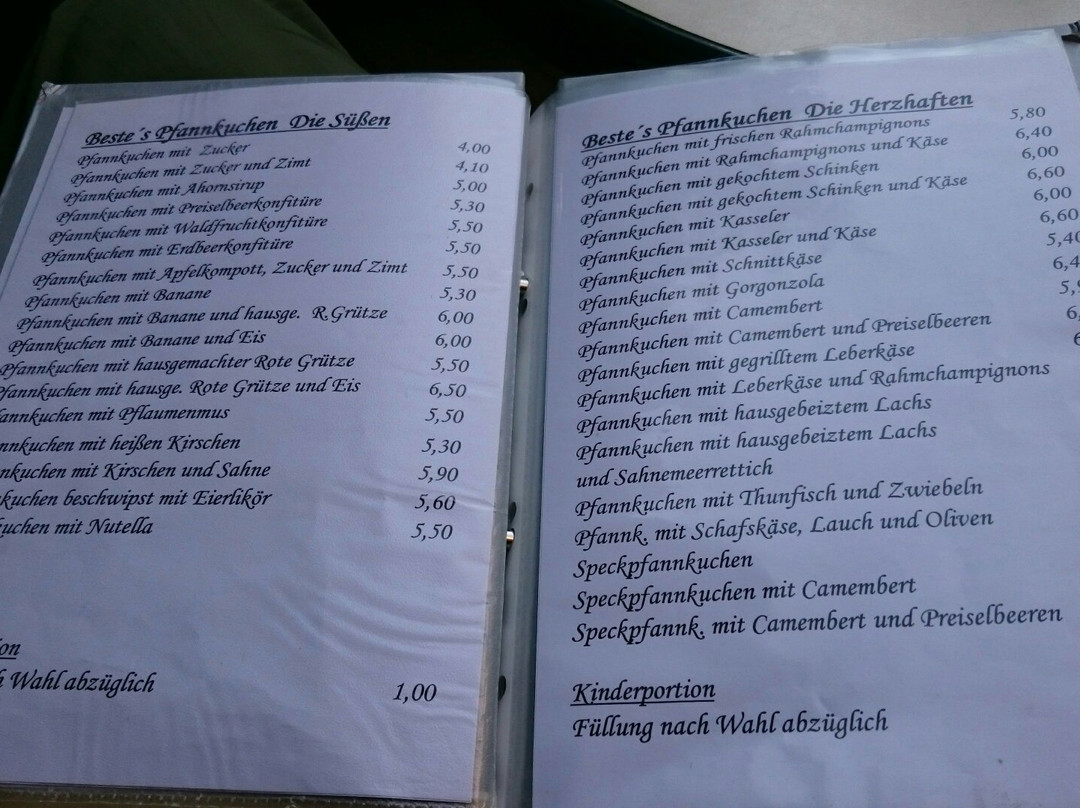 Beste´s Pfannkuchen Die Süßen
Pfannkuchen mit Zucker 4,00
Pfannkuchen mit Zucker und Zimt 4,10
Pfannkuchen mit Ahornsirup 5,00
Pfannkuchen mit Preiselbeerkonfitüre 5,30
Pfannkuchen mit Waldfruchtkonfitüre 5,50
Pfannkuchen mit Erdbeerkonfitüre 5,50
Pfannkuchen mit Apfelkompott, Zucker und Zimt 5,50
Pfannkuchen mit Banane 5,30
Pfannkuchen mit Banane und hausge. R.Grütze 6,00
Pfannkuchen mit Banane und Eis 6,00
Pfannkuchen mit hausgemachter Rote Grütze 5,50
Pfannkuchen mit hausge. Rote Grütze und Eis 6,50
annkuchen mit Pflaumenmus 5,50
nnkuchen mit heißen Kirschen 5,30
nkuchen mit Kirschen und Sahne 5,90
kuchen beschwipst mit Eierlikör 5,60
uchen mit Nutella 5,50
on
Wahl abzüglich 1,00
Beste´s Pfannkuchen Die Herzhaften
Pfannkuchen mit frischen Rahmchampignons 5,80
Pfannkuchen mit Rahmchampignons und Käse 6,40
Pfannkuchen mit gekochtem Schinken 6,00
Pfannkuchen mit gekochtem Schinken und Käse 6,60
Pfannkuchen mit Kasseler 6,00
Pfannkuchen mit Kasseler und Käse 6,60
Pfannkuchen mit Schnittkäse 5,40
Pfannkuchen mit Gorgonzola 6,4
Pfannkuchen mit Camembert 5,
Pfannkuchen mit Camembert und Preiselbeeren 6,
Pfannkuchen mit gegrilltem Leberkäse
Pfannkuchen mit Leberkäse und Rahmchampignons
Pfannkuchen mit hausgebeiztem Lachs
Pfannkuchen mit hausgebeiztem Lachs
und Sahnemeerrettich
Pfannkuchen mit Thunfisch und Zwiebeln
Pfannk. mit Schafskäse, Lauch und Oliven
Speckpfannkuchen
Speckpfannkuchen mit Camembert
Speckpfannk. mit Camembert und Preiselbeeren
Kinderportion
Füllung nach Wahl abzüglich